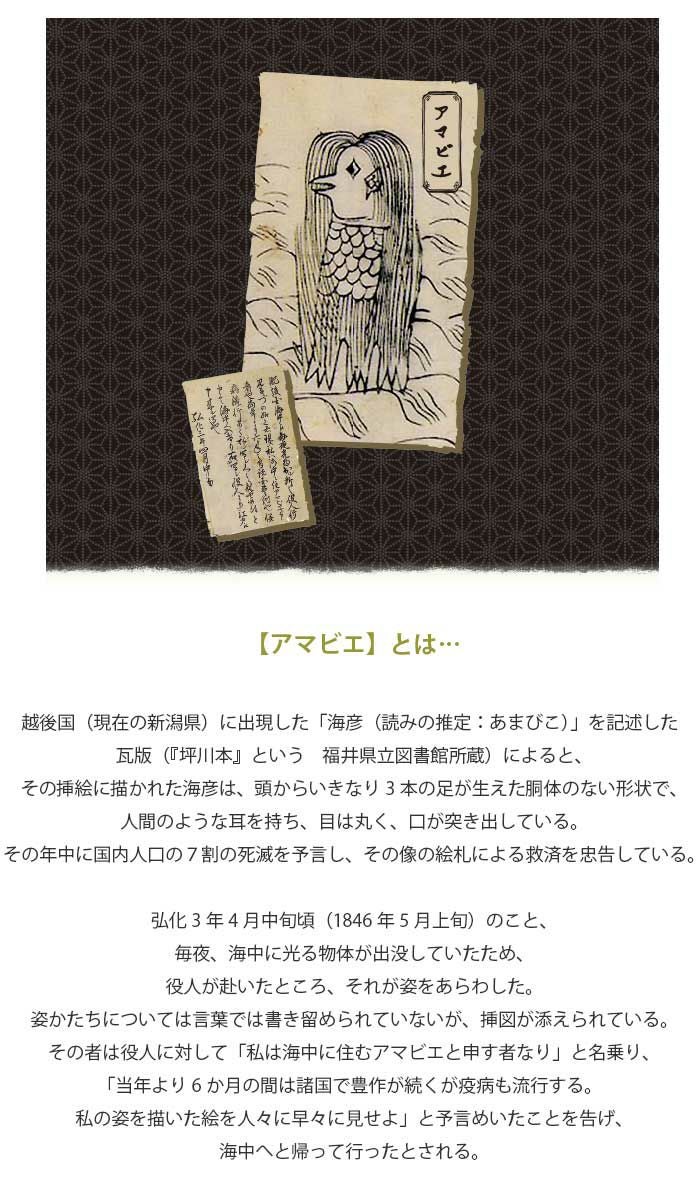 アマビエ
弘化三年四月中旬
【アマビエ】とは…
越後国（現在の新潟県）に出現した「海彦（読みの推定：あまびこ）」を記述した
瓦版（『坪川本』という　福井県立図書館所蔵）によると、
その挿絵に描かれた海彦は、頭からいきなり 3 本の足が生えた胴体のない形状で、
人間のような耳を持ち、目は丸く、口が突き出している。
その年中に国内人口の 7 割の死滅を予言し、その像の絵札による救済を忠告している。
弘化 3 年 4 月中旬頃（1846 年 5 月上旬）のこと、
毎夜、海中に光る物体が出没していたため、
役人が赴いたところ、それが姿をあらわした。
姿かたちについては言葉では書き留められていないが、挿図が添えられている。
その者は役人に対して「私は海中に住むアマビエと申す者なり」と名乗り、
「当年より 6 か月の間は諸国で豊作が続くが疫病も流行する。
私の姿を描いた絵を人々に早々に見せよ」と予言めいたことを告げ、
海中へと帰って行ったとされる。